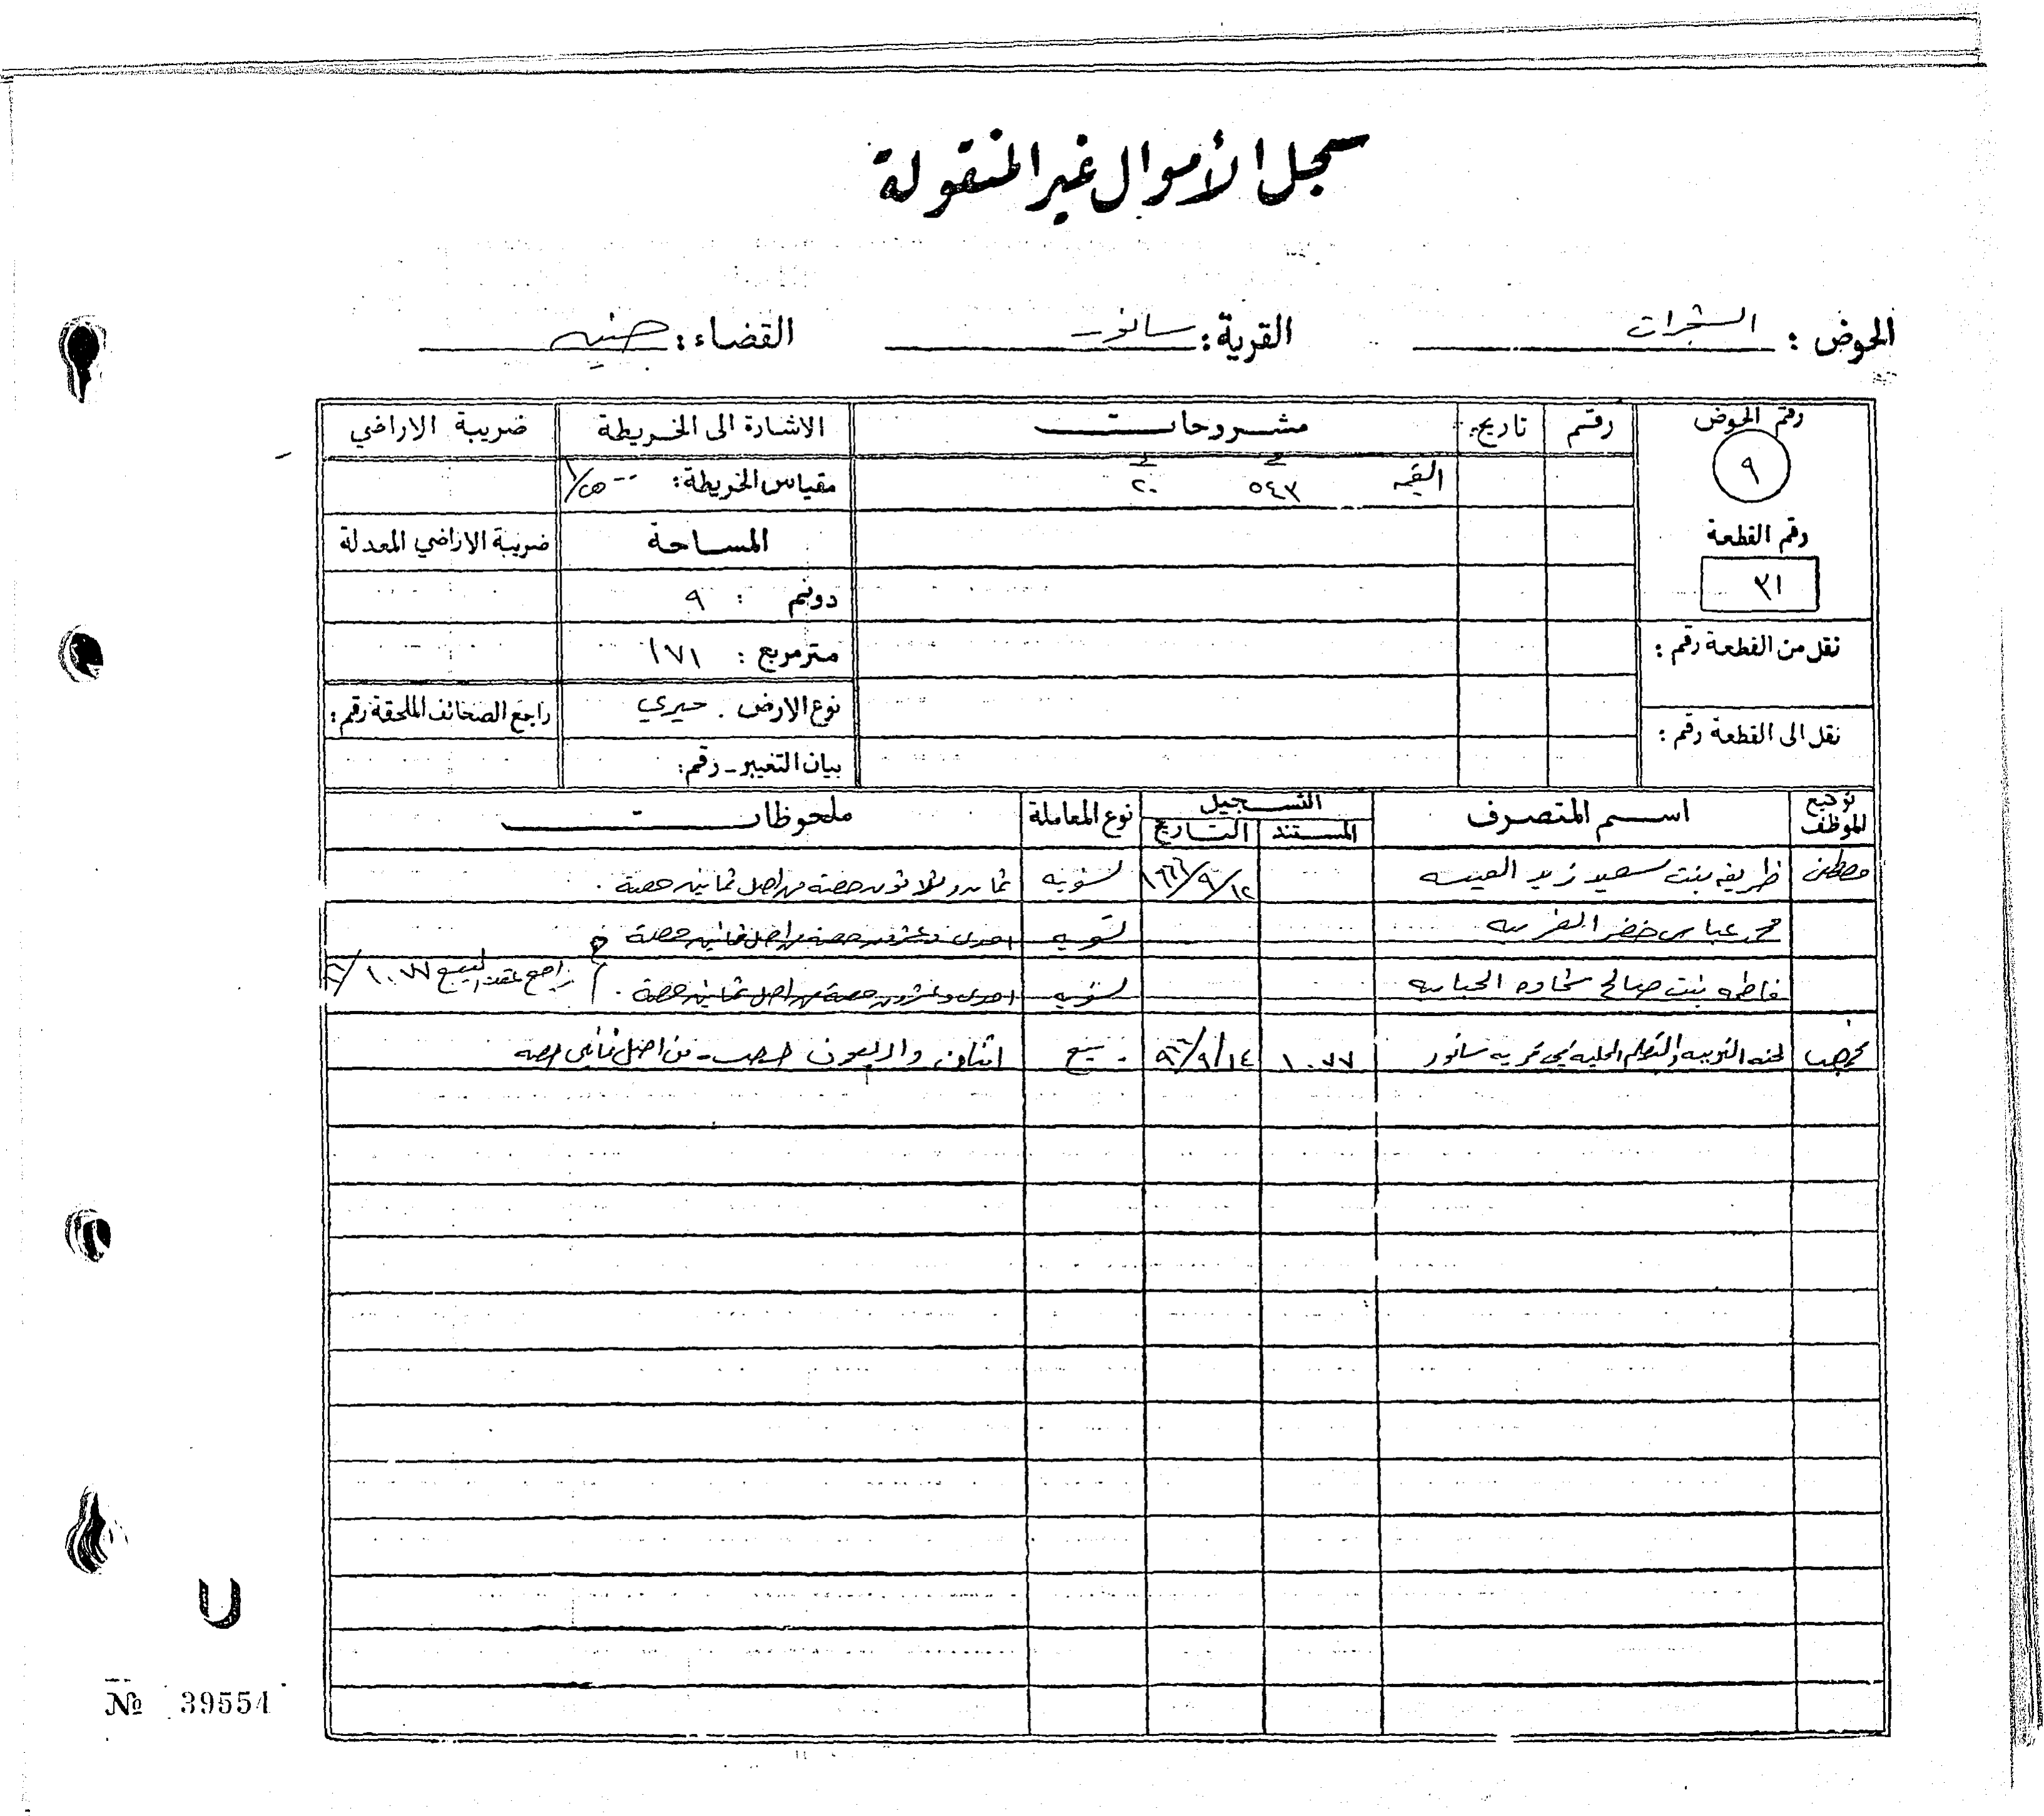 سجل الأموال غير المنقولة
الحوض : الشجرات القرية : سانور القضاء : جنين
رقم الحوض رقم تاريخ مشروحات الاشارة الى الخريطة ضريبة الاراضي
٩ القيمة ٥٤٣ ٢٠ مقياس الخريطة : ١/٢٥٠٠
رقم القطعة المساحة ضريبة الاراضي المعدلة
٣١ دونم : ٩
نقل من القطعة رقم : متر مربع : ١٧١
نوع الارض . ميري راجع الصحائف الملحقة رقم :
نقل الى القطعة رقم :
بيان التغيير - رقم :
توقيع الموظف اسم المتصرف التسجيل المستند التاريخ نوع المعاملة ملحوظات
مصطفى ظريفه بنت سعيد زيد العيسه ١٩٦٦/٩/١٢ تسويه ثمان وثلاثون حصة من اصل ثمانين حصة .
محمد عباس خضر تسويه احدى وعشرون حصة من اصل ثمانين حصة
فاطمه بنت صالح تسويه احدى وعشرون حصة من اصل ثمانين حصة . راجع عقد البيع ١٠٧٧
لجنه التربيه والتعليم المحليه في قريه سانور ١٠٧٧ ٩٦٦/٩/١٤ بيع اثنان واربعون حصه من اصل ثمانين حصه
№ 39554